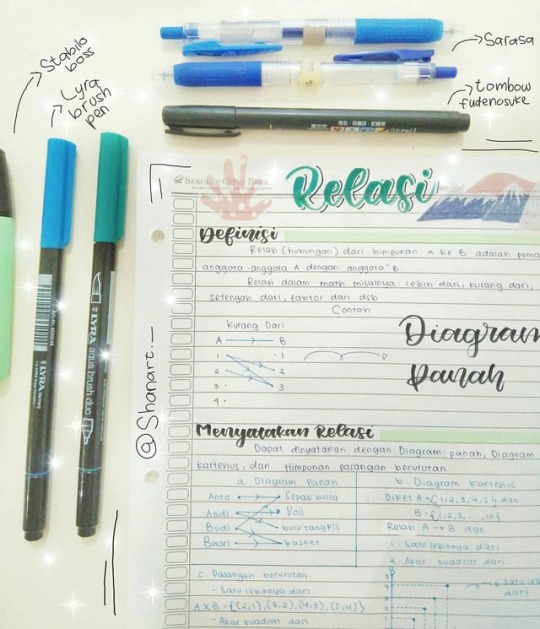 Stabilo
boss
Lyra
brush
pen
Sarasa
tombow
fudenosuke
LYRA
LYRA aqua brush duo
@Shanart._
Relasi
Definisi
Relasi (hubungan) dari himpunan A ke B adalah
anggota-anggota A dengan anggota" B.
Relasi dalam math misalnya lebih dari, kurang dari,
setengah dari, faktor dari dsb
Contoh
Kurang Dari
A B
1 1
2 2
3 3
4
Diagram
Panah
Menyatakan Relasi
Dapat dinyatakan dengan Diagram panah, Diagram
kartesius, dan Himpunan pasangan berurutan
a. Diagram Panah
Anto Sepak bola
Andi Voli
Budi bulu tangkis
Basri basket
b. Diagram Kartesius
Diket A={1,2,3,4,5} dan
B={1,2,3,...,10}
Relasi A → B dgn
1. Satu lebihnya dari
2. Akar kuadrat dari
c. Pasangan berurutan
- Satu lebihnya dari
A×B = {(2,1),(3,2),(4,3),(5,4)}
- Akar kuadrat dari
B
5
4
3
Satu
dari